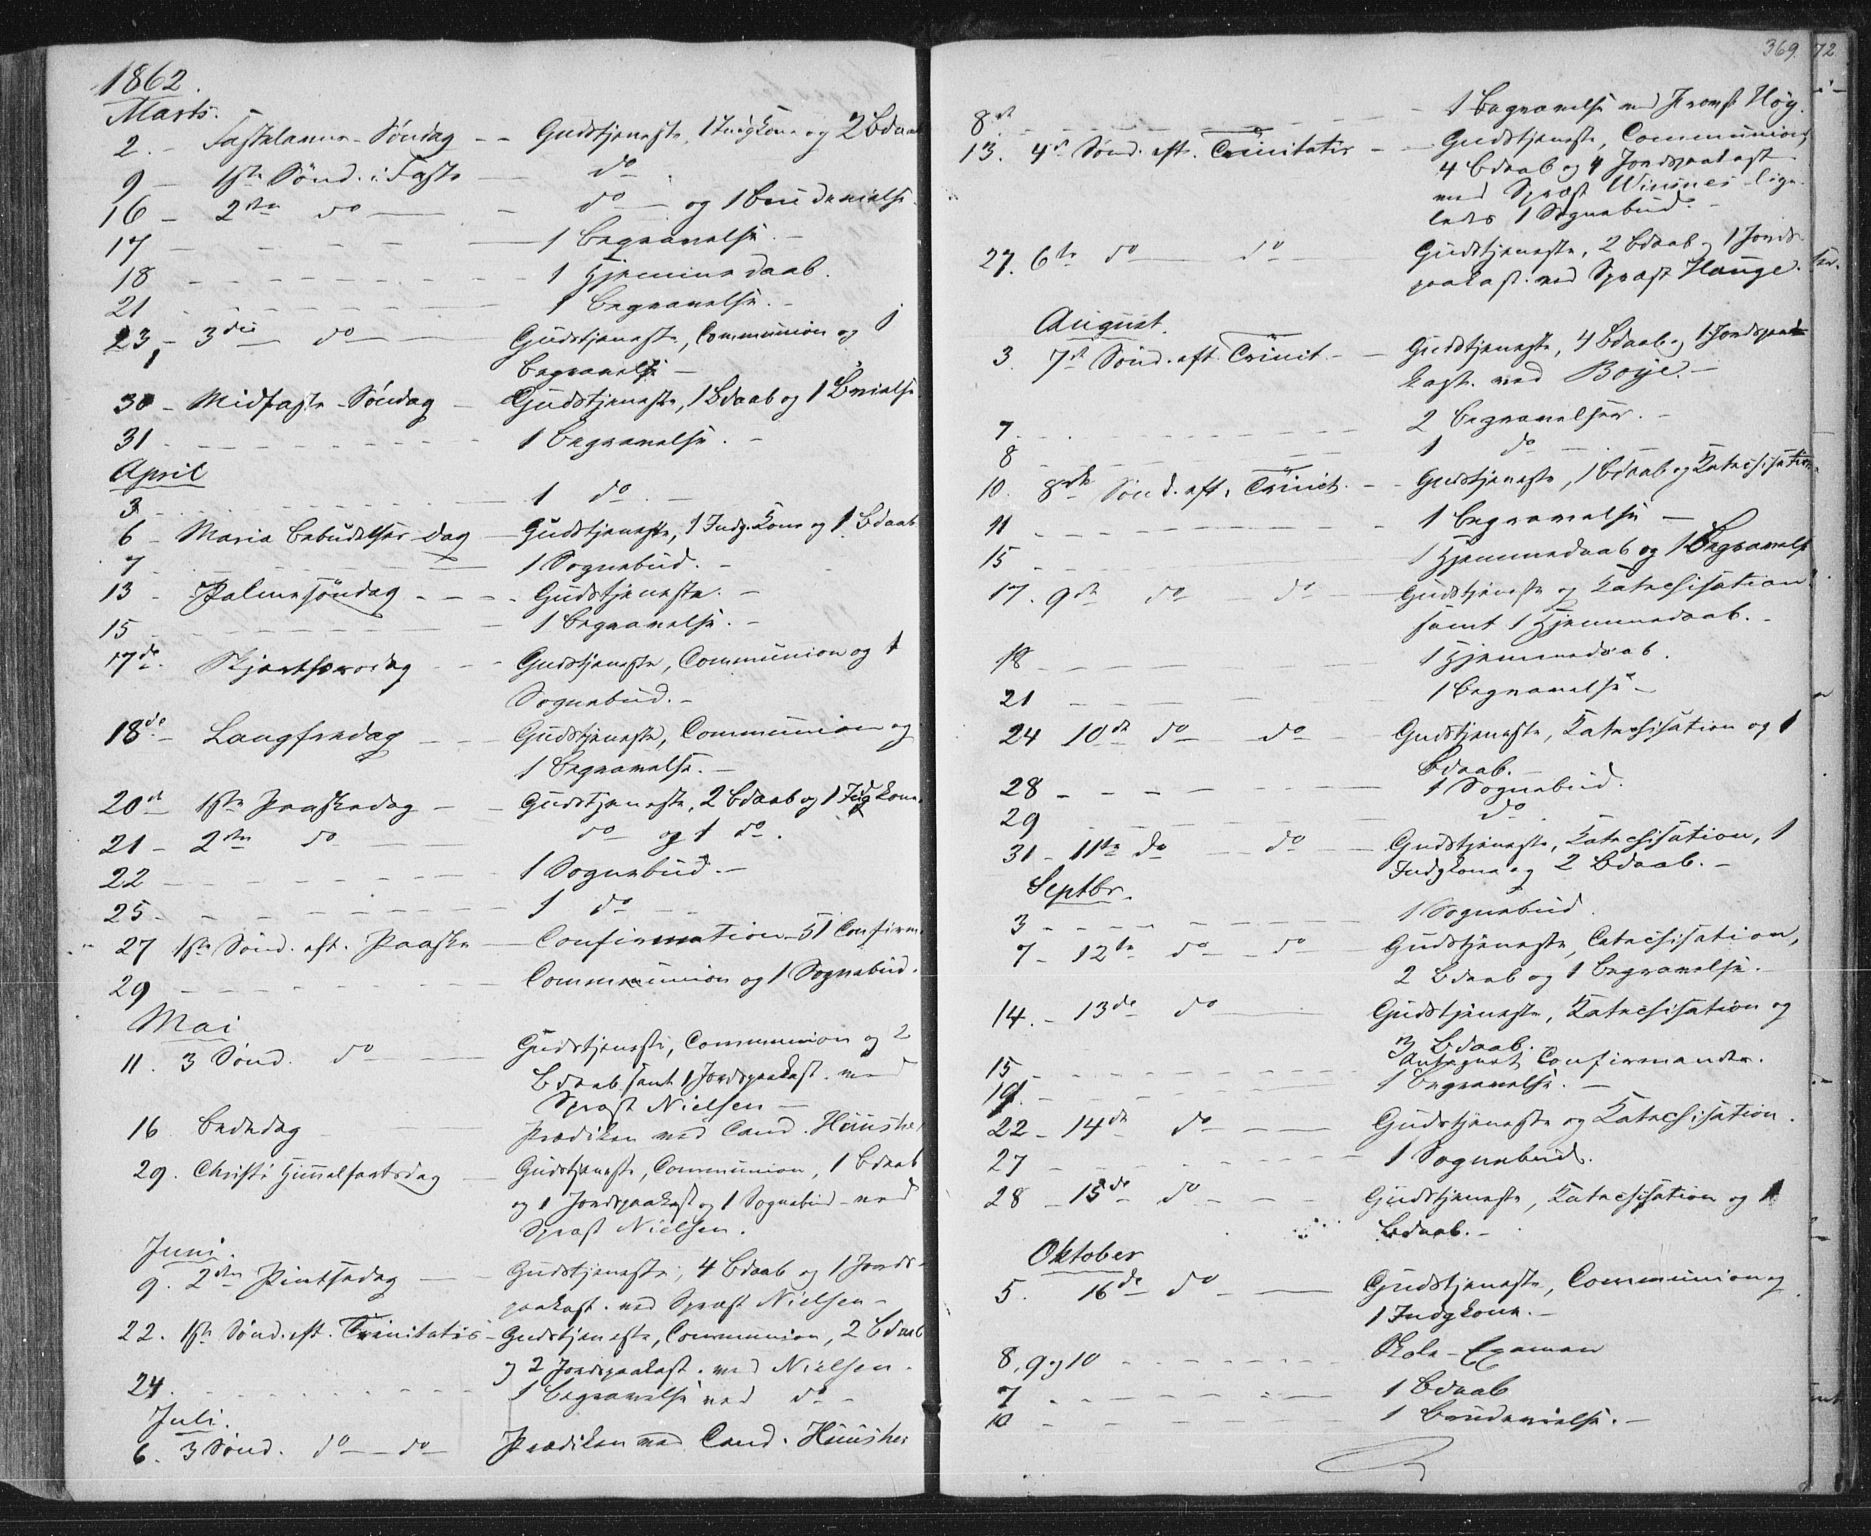 1862.
Marts.
2. - Fastelavns-Søndag - - Gudstjeneste, 1 Indgkone og 2 Bdaab
9 - 1ste Sønd. i Faste - do.
16 - 2den do - do - og 1 Brudevielse.
17 - 1 Begravelse. -
18 - 1 Hjemmedaab.
21 - 1 Begravelse. -
23, - 3die do - Gudstjeneste, Communion og 1
Begravelse -
30 - Midfaste-Søndag - Gudstjeneste, 1 Bdaab og 1 Bvielse
31 - 1 Begravelse. -
April
3 - 1 do. -
6 - Maria Bebudelses-Dag - Gudstjeneste, 1 Indg.Kone og 1 Bdaab
7 - 1 Sognebud. -
13 - Palmesøndag - - - Gudstjeneste. -
15 - 1 Begravelse. -
17de. Skjærthorsdag - - Gudstjeneste, Communion og 1
Sognebud. -
18de - Langfredag - - Gudstjeneste, Communion og
1 Begravelse. -
20de 1ste Paaskedag - - Gudstjeneste, 2 Bdaab og 1 Idgkone.
21 - 2den do - do og 1 do.
22 - 1 Sognebud. -
25 - 1 do -
27 1ste Sønd. eft. Paaske - Confirmation - 31 Confirm.
29 - Communion og 1 Sognebud.
Mai
11. 3 Sønd. do - Gudstjeneste, Communion og 2
Bdaab samt 1 Jordspaakast. ved
Spræst Nielsen -
16 Bededag - Prædiken ved Cand. Huusher
29. Christi Himmelfartsdag - Gudstjeneste, Communion, 1 Bdaab
og 1 Jordspaakast og 1 Sognebud - ved
Spræst Nielsen.
Juni.
9. 2den Pintsedag - Gudstjeneste, 4 Bdaab og 1 Jords-
paakast. ved Spræst Nielsen -
22. 1ste Sønd. eft. Trinitatis - Gudstjeneste, Communion, 2 Bdaab
og 2 Jordspaakast. ved Nielsen.
24. - 1 Begravelse ved do -
Juli.
6. 3 Sønd. do - do Prædiken ved Cand. Huusher
369. 72
8de - 1 Begravelse ved Provst Høg.
13. 4de Sønd. eft. Trinitatis - Gudstjeneste, Communion,
4 Bdaab og 4 Jordspaakast
ved Spræst Winsnes - lige-
ledes 1 Sognebud. -
27. 6te do - do Gudstjeneste, 2 Bdaab og 1 Jords-
paakast. ved Spræst Hauge.
August.
3. 7de Sønd. eft. Trinit. - Gudstjeneste, 4 Bdaab og 1 Jordspaa-
kast. ved Boye. -
7. - 2 Begravelser. -
8 - 1 do -
10. 8nde Sønd. eft. Trinit. - - Gudstjeneste, 1 Bdaab og Katechisation.
11 - 1 Begravelse -
15 - 1 Hjemmedaab og 1 Begravelse
17. 9de do do - Gudstjeneste og Katechisation
samt 1 Hjemmedaab. -
18 - 1 Hjemmedaab.
21 - 1 Begravelse -
24 10de do do - Gudstjeneste, Katechisation og 1
Bdaab. -
28 - 1 Sognebud.
29 - do.
31 - 11te do - do - Gudstjeneste, Katechisation, 1
Indgkone og 2 Bdaab. -
Septbr.
3 - 1 Sognebud.
7 - 12te do - do - Gudstjeneste, Catechisation,
2 Bdaab og 1 Begravelse. -
14. - 13de do - Gudstjeneste, Katechisation og
3 Bdaab.
15 - Antegnet Confirmander.
19. - 1 Begravelse. -
22 - 14de do - Gudstjeneste og Katechisation.
27 - 1 Sognebud.
28 - 15de do - Gudstjeneste, Katechisation og 1
Bdaab. -
Oktober
5. 16de do - Gudstjeneste, Communion og
1 Indgkone. -
8, 9 og 10 - Skole-Examen
7 - 1 Bdaab
10 - 1 Brudevielse. -